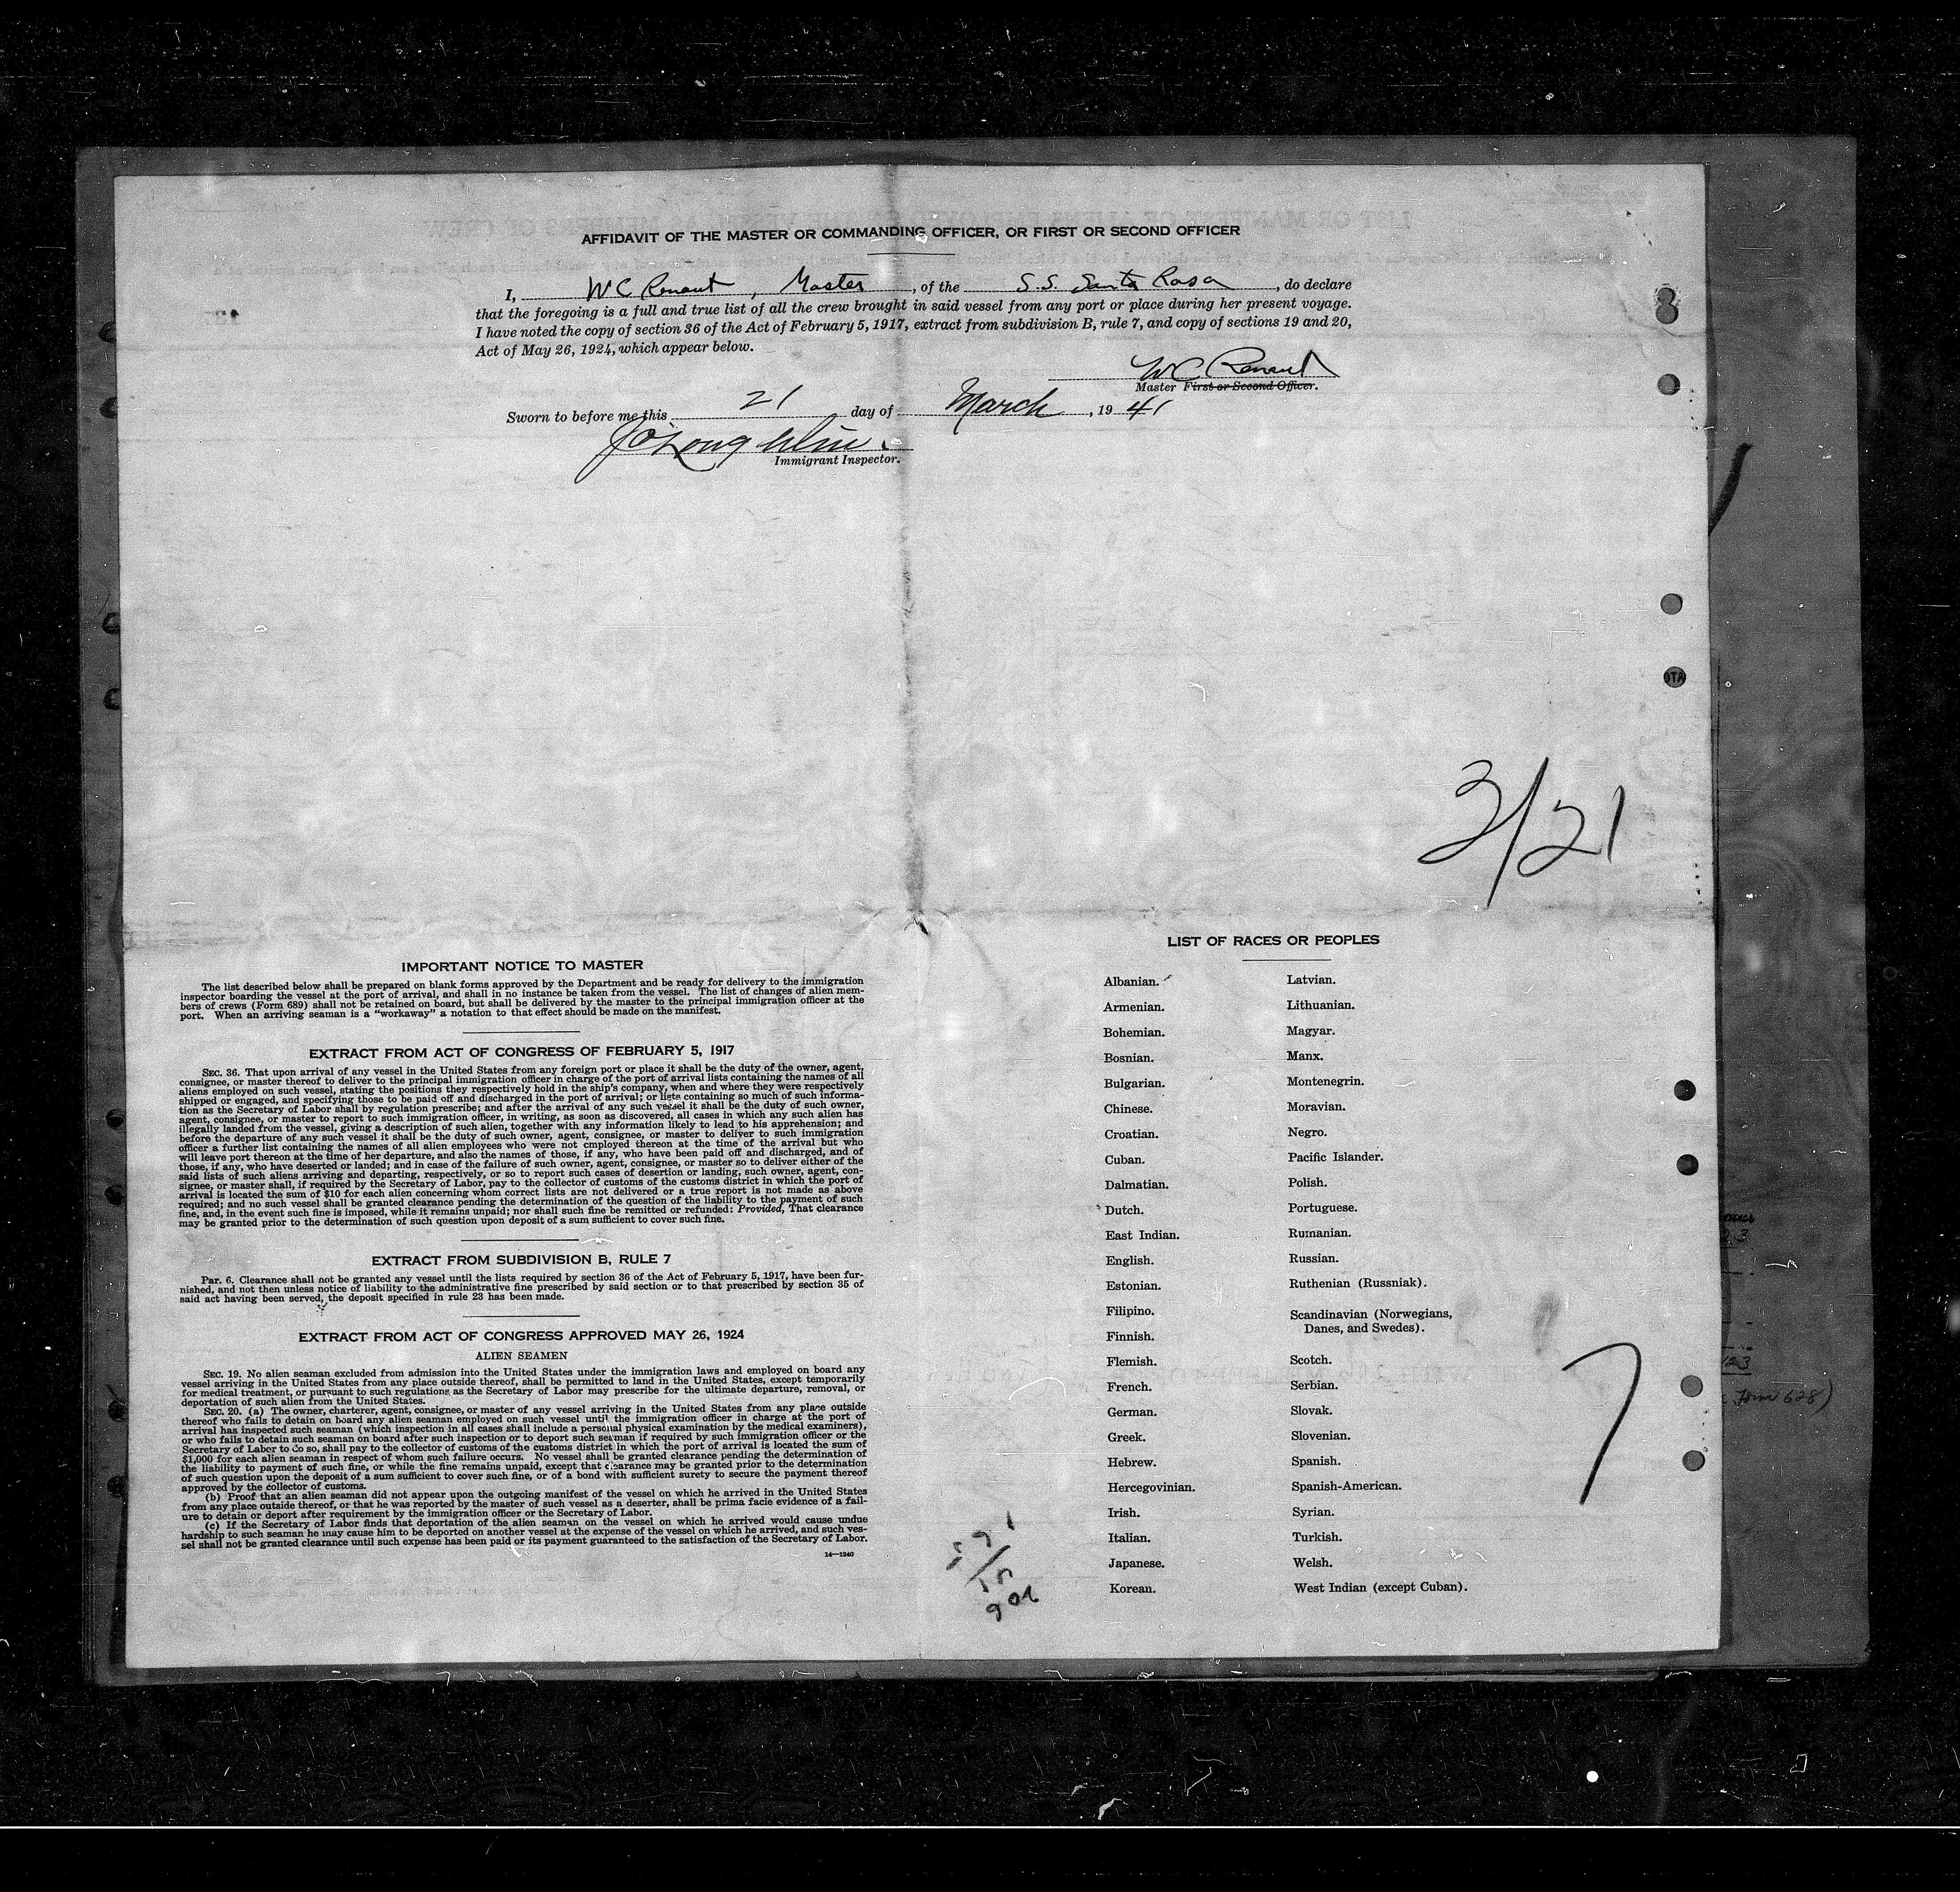 AFFIDAVIT OF THE MASTER OR COMMANDING OFFICER, OR FIRST OR SECOND OFFICER
I, W C Renaut, Master, of the S.S. Santa Rosa, do declare
that the foregoing is a full and true list of all the crew brought in said vessel from any port or place during her present voyage.
I have noted the copy of section 36 of the Act of February 5, 1917, extract from subdivision B, rule 7, and copy of sections 19 and 20,
Act of May 26, 1924, which appear below.
W C Renaut
Master First or Second Officer.
Sworn to before me this 21 day of March, 19 41
Immigrant Inspector.
OTA
3/21
IMPORTANT NOTICE TO MASTER
The list described below shall be prepared on blank forms approved by the Department and be ready for delivery to the immigration
inspector boarding the vessel at the port of arrival, and shall in no instance be taken from the vessel. The list of changes of alien mem-
bers of crews (Form 689) shall not be retained on board, but shall be delivered by the master to the principal immigration officer at the
port. When an arriving seaman is a "workaway" a notation to that effect should be made on the manifest.
EXTRACT FROM ACT OF CONGRESS OF FEBRUARY 5, 1917
SEC. 36. That upon arrival of any vessel in the United States from any foreign port or place it shall be the duty of the owner, agent,
consignee, or master thereof to deliver to the principal immigration officer in charge of the port of arrival lists containing the names of all
aliens employed on such vessel, stating the positions they respectively hold in the ship's company, when and where they were respectively
shipped or engaged, and specifying those to be paid off and discharged in the port of arrival; or lists containing so much of such informa-
tion as the Secretary of Labor shall by regulation prescribe; and after the arrival of any such vessel it shall be the duty of such owner,
agent, consignee, or master to report to such immigration officer, in writing, as soon as discovered, all cases in which any such alien has
illegally landed from the vessel, giving a description of such alien, together with any information likely to lead to his apprehension; and
before the departure of any such vessel it shall be the duty of such owner, agent, consignee, or master to deliver to such immigration
officer a further list containing the names of all alien employees who were not employed thereon at the time of the arrival but who
will leave port thereon at the time of her departure, and also the names of those, if any, who have been paid off and discharged, and of
those, if any, who have deserted or landed; and in case of the failure of such owner, agent, consignee, or master so to deliver either of the
said lists of such aliens arriving and departing, respectively, or so to report such cases of desertion or landing, such owner, agent, con-
signee, or master shall, if required by the Secretary of Labor, pay to the collector of customs of the customs district in which the port of
arrival is located the sum of $10 for each alien concerning whom correct lists are not delivered or a true report is not made as above
required; and no such vessel shall be granted clearance pending the determination of the question of the liability to the payment of such
fine, and, in the event such fine is imposed, while it remains unpaid; nor shall such fine be remitted or refunded: Provided, That clearance
may be granted prior to the determination of such question upon deposit of a sum sufficient to cover such fine.
EXTRACT FROM SUBDIVISION B, RULE 7
Par. 6. Clearance shall not be granted any vessel until the lists required by section 36 of the Act of February 5, 1917, have been fur-
nished, and not then unless notice of liability to the administrative fine prescribed by said section or to that prescribed by section 35 of
said act having been served, the deposit specified in rule 23 has been made.
EXTRACT FROM ACT OF CONGRESS APPROVED MAY 26, 1924
ALIEN SEAMEN
SEC. 19. No alien seaman excluded from admission into the United States under the immigration laws and employed on board any
vessel arriving in the United States from any place outside thereof, shall be permitted to land in the United States, except temporarily
for medical treatment, or pursuant to such regulations as the Secretary of Labor may prescribe for the ultimate departure, removal, or
deportation of such alien from the United States.
SEC. 20. (a) The owner, charterer, agent, consignee, or master of any vessel arriving in the United States from any place outside
thereof who fails to detain on board any alien seaman employed on such vessel until the immigration officer in charge at the port of
arrival has inspected such seaman (which inspection in all cases shall include a personal physical examination by the medical examiners),
or who fails to detain such seaman on board after such inspection or to deport such seaman if required by such immigration officer or the
Secretary of Labor to do so, shall pay to the collector of customs of the customs district in which the port of arrival is located the sum of
$1,000 for each alien seaman in respect of whom such failure occurs. No vessel shall be granted clearance pending the determination of
the liability to payment of such fine, or while the fine remains unpaid, except that clearance may be granted prior to the determination
of such question upon the deposit of a sum sufficient to cover such fine, or of a bond with sufficient surety to secure the payment thereof
approved by the collector of customs.
(b) Proof that an alien seaman did not appear upon the outgoing manifest of the vessel on which he arrived in the United States
from any place outside thereof, or that he was reported by the master of such vessel as a deserter, shall be prima facie evidence of a fail-
ure to detain or deport after requirement by the immigration officer or the Secretary of Labor.
(c) If the Secretary of Labor finds that deportation of the alien seaman on the vessel on which he arrived would cause undue
hardship to such seaman he may cause him to be deported on another vessel at the expense of the vessel on which he arrived, and such ves-
sel shall not be granted clearance until such expense has been paid or its payment guaranteed to the satisfaction of the Secretary of Labor.
14—1240
LIST OF RACES OR PEOPLES
Albanian.
Armenian.
Bohemian.
Bosnian.
Bulgarian.
Chinese.
Croatian.
Cuban.
Dalmatian.
Dutch.
East Indian.
English.
Estonian.
Filipino.
Finnish.
Flemish.
French.
German.
Greek.
Hebrew.
Hercegovinian.
Irish.
Italian.
Japanese.
Korean.
Latvian.
Lithuanian.
Magyar.
Manx.
Montenegrin.
Moravian.
Negro.
Pacific Islander.
Polish.
Portuguese.
Rumanian.
Russian.
Ruthenian (Russniak).
Scandinavian (Norwegians,
Danes, and Swedes).
Scotch.
Serbian.
Slovak.
Slovenian.
Spanish.
Spanish-American.
Syrian.
Turkish.
Welsh.
West Indian (except Cuban).
7
Form 628)